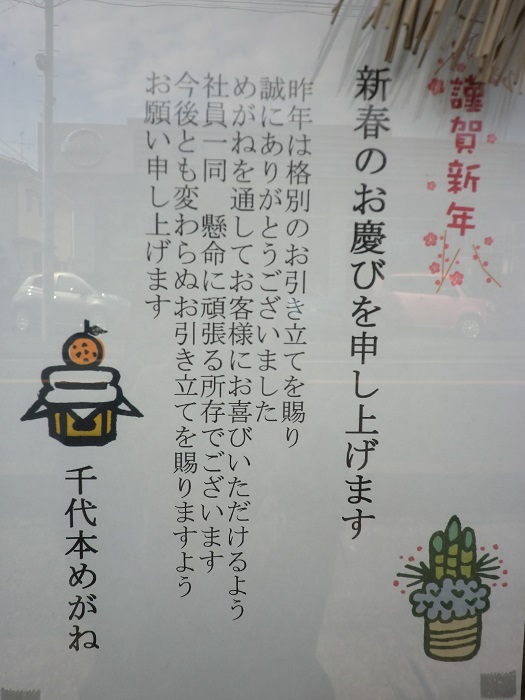 謹賀新年
新春のお慶びを申し上げます
昨年は格別のお引き立てを賜り
誠にありがとうございました
めがねを通してお客様にお喜びいただけるよう
社員一同　懸命に頑張る所存でございます
今後とも変わらぬお引き立てを賜りますよう
お願い申し上げます
千代本めがね